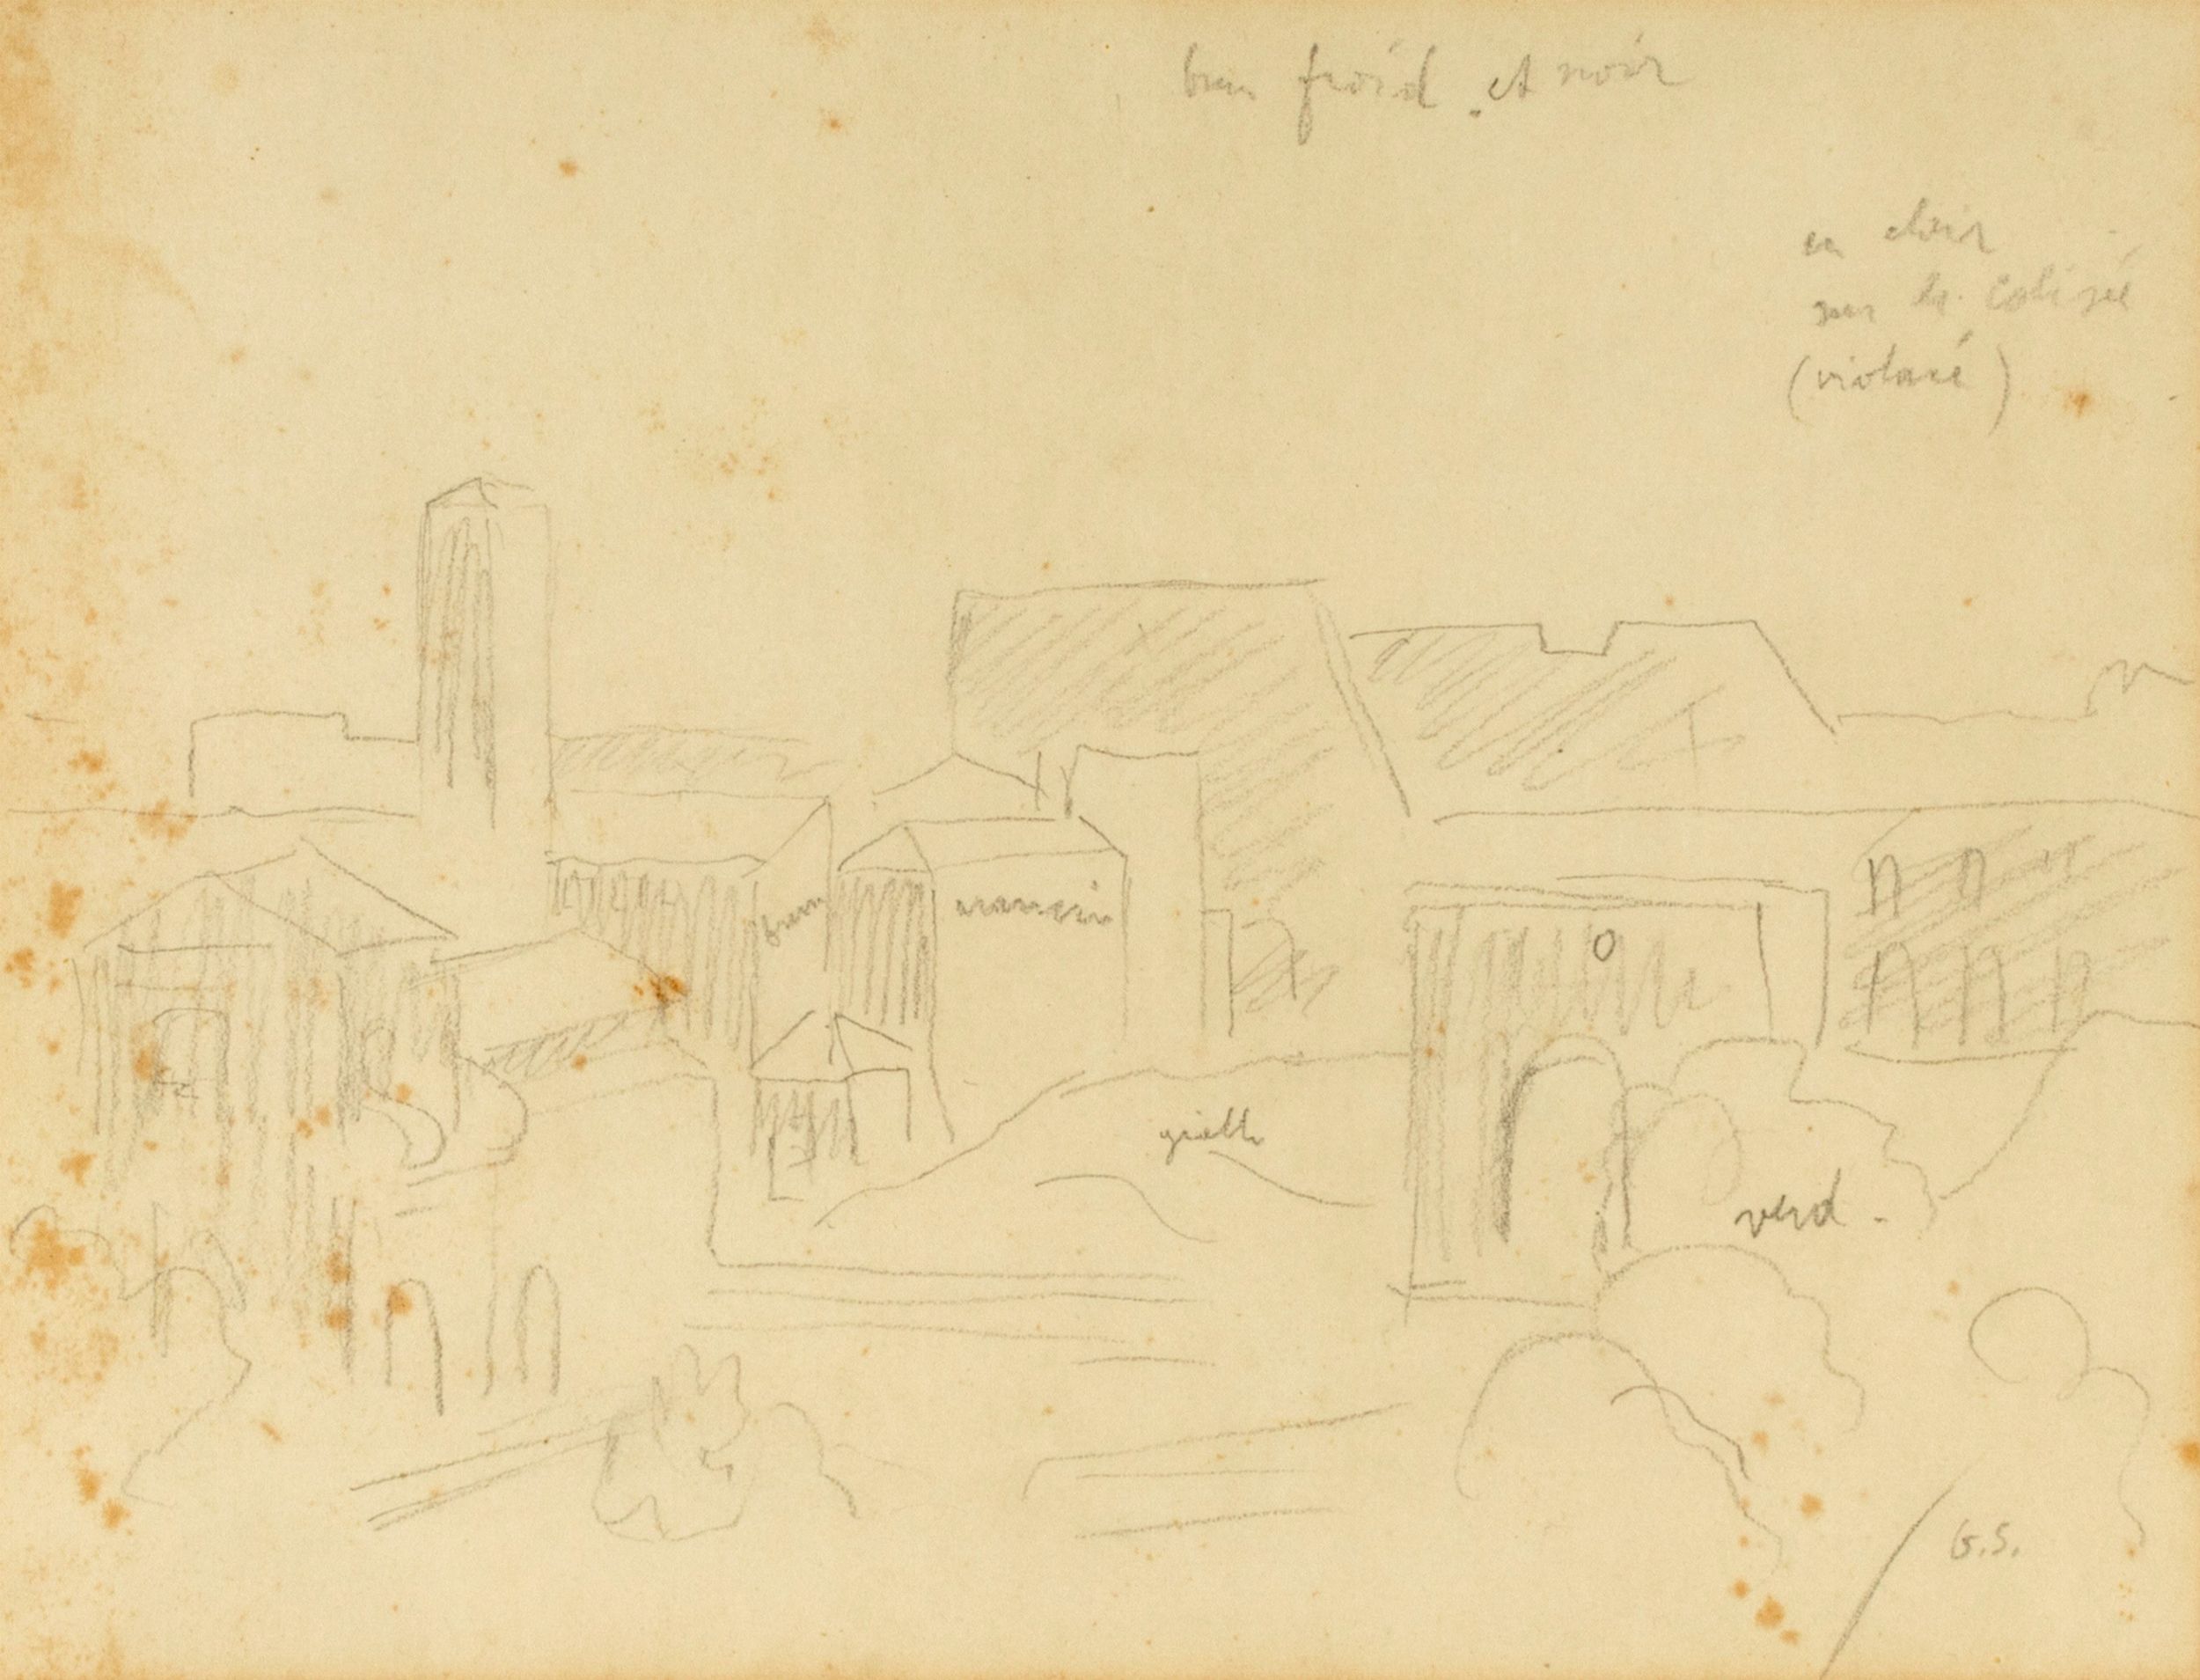 brun froid et noir
en clair
sur le colisée
(violacé)
brun
giallo
verd.
G.S.